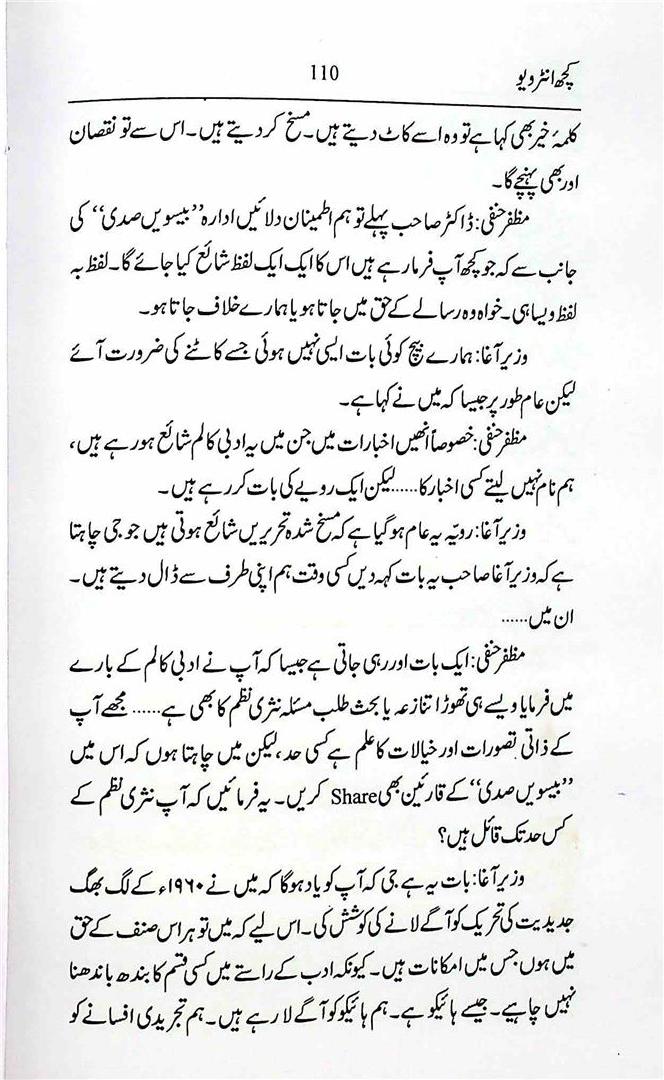 کچھ انٹرویو
110
کلمۂ خیر بھی کہا ہے تو وہ اسے کاٹ دیتے ہیں۔ مسخ کر دیتے ہیں۔ اس سے تو نقصان
اور بھی پہنچے گا۔
مظفر حنفی: ڈاکٹر صاحب پہلے تو ہم اطمینان دلائیں ادارہ ”بیسویں صدی“ کی
جانب سے کہ جو کچھ آپ فرما رہے ہیں اس کا ایک ایک لفظ شائع کیا جائے گا۔ لفظ بہ
لفظ ویسا ہی۔ خواہ وہ رسالے کے حق میں جاتا ہو یا ہمارے خلاف جاتا ہو۔
وزیر آغا: ہمارے بیچ کوئی بات ایسی نہیں ہوئی جسے کاٹنے کی ضرورت آئے
لیکن عام طور پر جیسا کہ میں نے کہا ہے۔
مظفر حنفی: خصوصاً انھیں اخبارات میں جن میں یہ ادبی کالم شائع ہو رہے ہیں،
ہم نام نہیں لیتے کسی اخبار کا...... لیکن ایک رویے کی بات کر رہے ہیں۔
وزیر آغا: رویّہ یہ عام ہو گیا ہے کہ مسخ شدہ تحریریں شائع ہوتی ہیں جو جی چاہتا
ہے کہ وزیر آغا صاحب یہ بات کہہ دیں کسی وقت ہم اپنی طرف سے ڈال دیتے ہیں۔
ان میں......
مظفر حنفی: ایک بات اور رہی جاتی ہے جیسا کہ آپ نے ادبی کالم کے بارے
میں فرمایا ویسے ہی تھوڑا تنازعہ یا بحث طلب مسئلہ نثری نظم کا بھی ہے...... مجھے آپ
کے ذاتی تصورات اور خیالات کا علم ہے کسی حد، لیکن میں چاہتا ہوں کہ اس میں
”بیسویں صدی“ کے قارئین بھی Share کریں۔ یہ فرمائیں کہ آپ نثری نظم کے
کس حد تک قائل ہیں؟
وزیر آغا: بات یہ ہے جی کہ آپ کو یاد ہوگا کہ میں نے ۱۹۶۰ء کے لگ بھگ
جدیدیت کی تحریک کو آگے لانے کی کوشش کی۔ اس لیے کہ میں تو ہر اس صنف کے حق
میں ہوں جس میں امکانات ہیں۔ کیونکہ ادب کے راستے میں کسی قسم کا بندھ باندھنا
نہیں چاہیے۔ جیسے ہائیکو ہے۔ ہم ہائیکو کو آگے لا رہے ہیں۔ ہم تجریدی افسانے کو